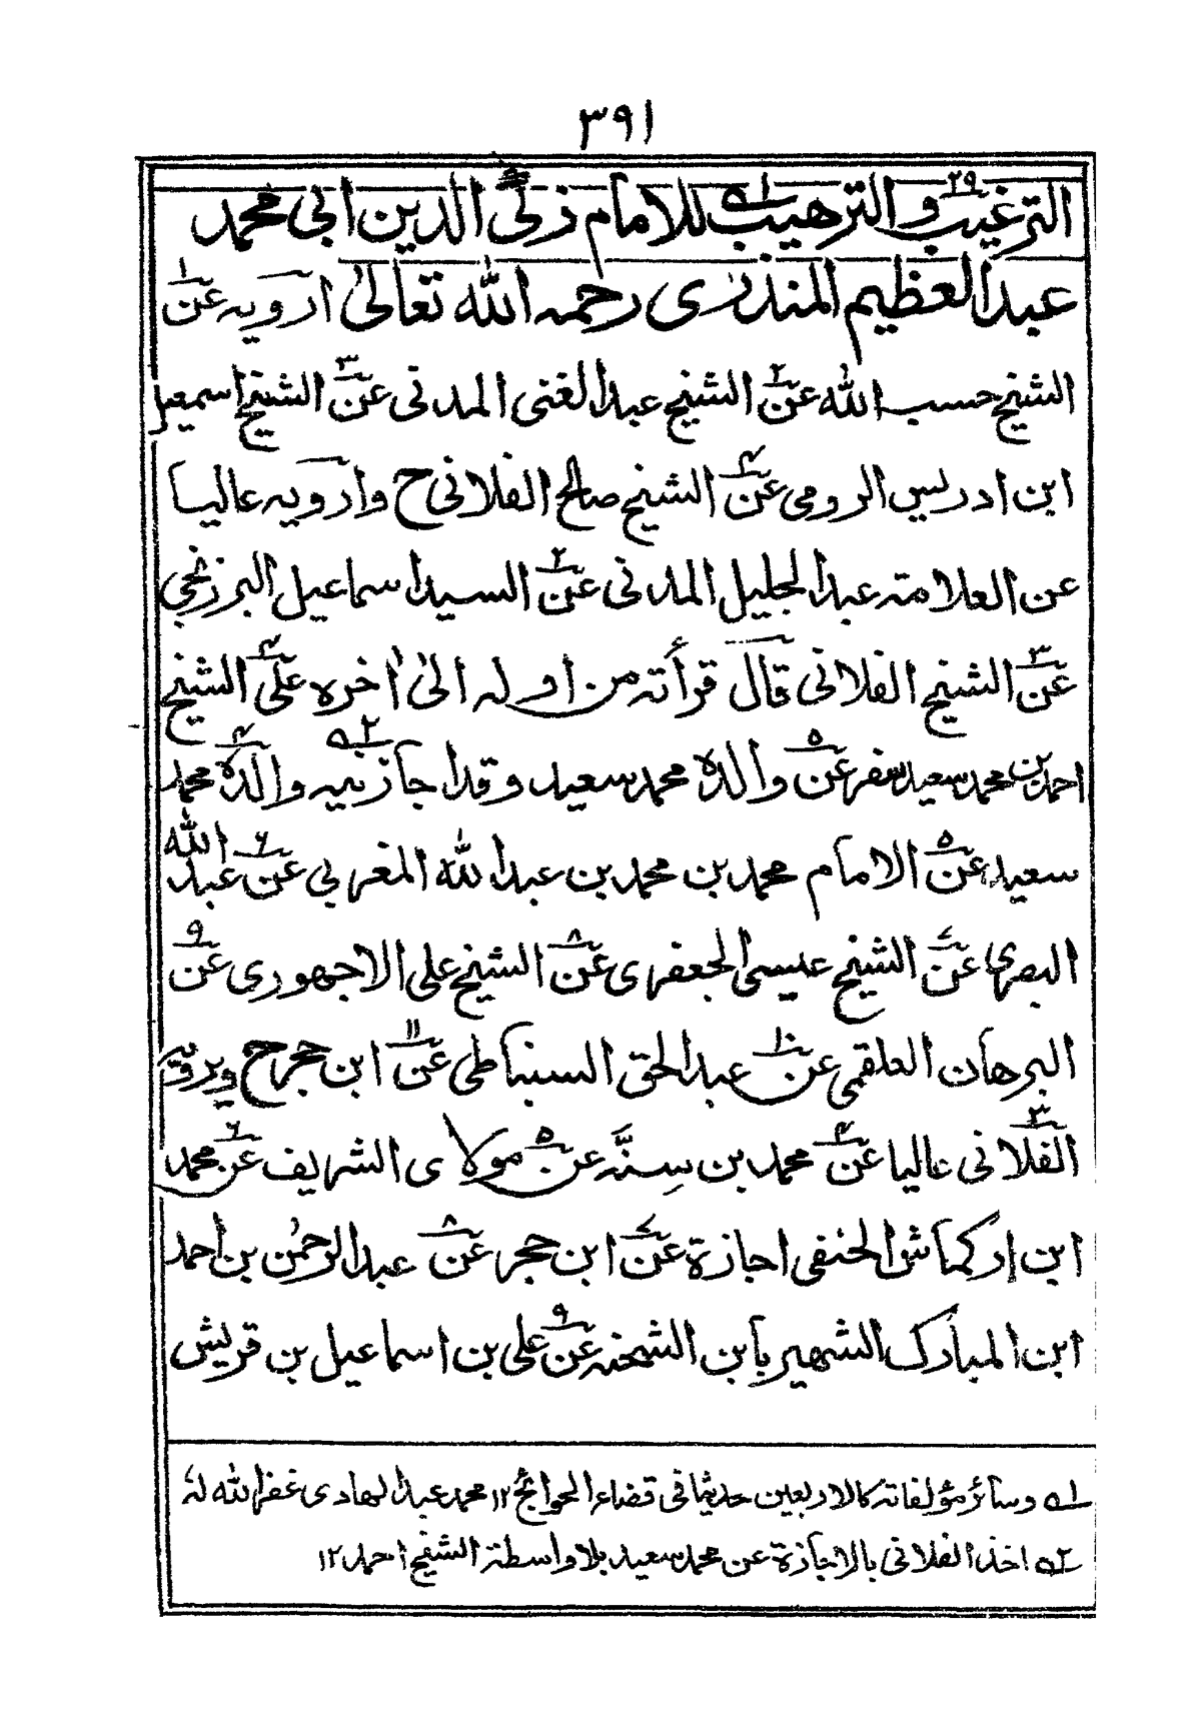 ٣٩١
الترغيب٢٩ والترهيب١؎ للامام زكي الدين ابي محمد
عبدالعظيم المنذري رحمه الله تعالى ارويه عن١
الشيخ حسب الله عن٢ الشيخ عبدالغني المدني عن٣ الشيخ اسمعيل
ابن ادريس الرومي عن٤ الشيخ صالح الفلاني ح وارويه عاليا
عن العلامة عبدالجليل المدني عن٢ السيد اسماعيل البرزنجي
عن٣ الشيخ الفلاني قال قرأته من اوله الى اخره على٤ الشيخ
احمد بن محمد سعيد سفر عن٥ والده محمد سعيد وقد اجازنيه٢؎ والده٤ محمد
سعيد عن٥ الامام محمد بن محمد بن عبدالله المغربي عن٦ عبدالله
البصري عن٧ الشيخ عيسى الجعفري عن٨ الشيخ علي الاجهوري عن٩
البرهان العلقمي عن١٠ عبدالحق السنباطي عن١١ ابن حجر ح ويرويه
الفلاني٣ عاليا عن٤ محمد بن سِنَّه عن٥ مولاى الشريف عن٦ محمد
ابن اركماش الحنفي اجازة عن٧ ابن حجر عن٨ عبدالرحمٰن بن احمد
ابن المبارك الشهير بابن الشحنه عن٩ علي بن اسماعيل بن قريش
١؎ وسائر مؤلفاته كالاربعين حديثا في قضاء الحوائج ١٢ محمد عبدالهادى غفر الله له
٢؎ اخذ الفلاني بالاجازة عن محمد سعيد بلا واسطة الشيخ احمد ١٢